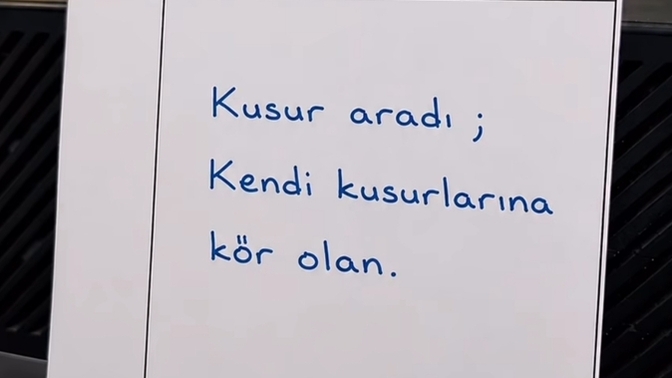 Kusur aradı ;
Kendi kusurlarına
kör olan.